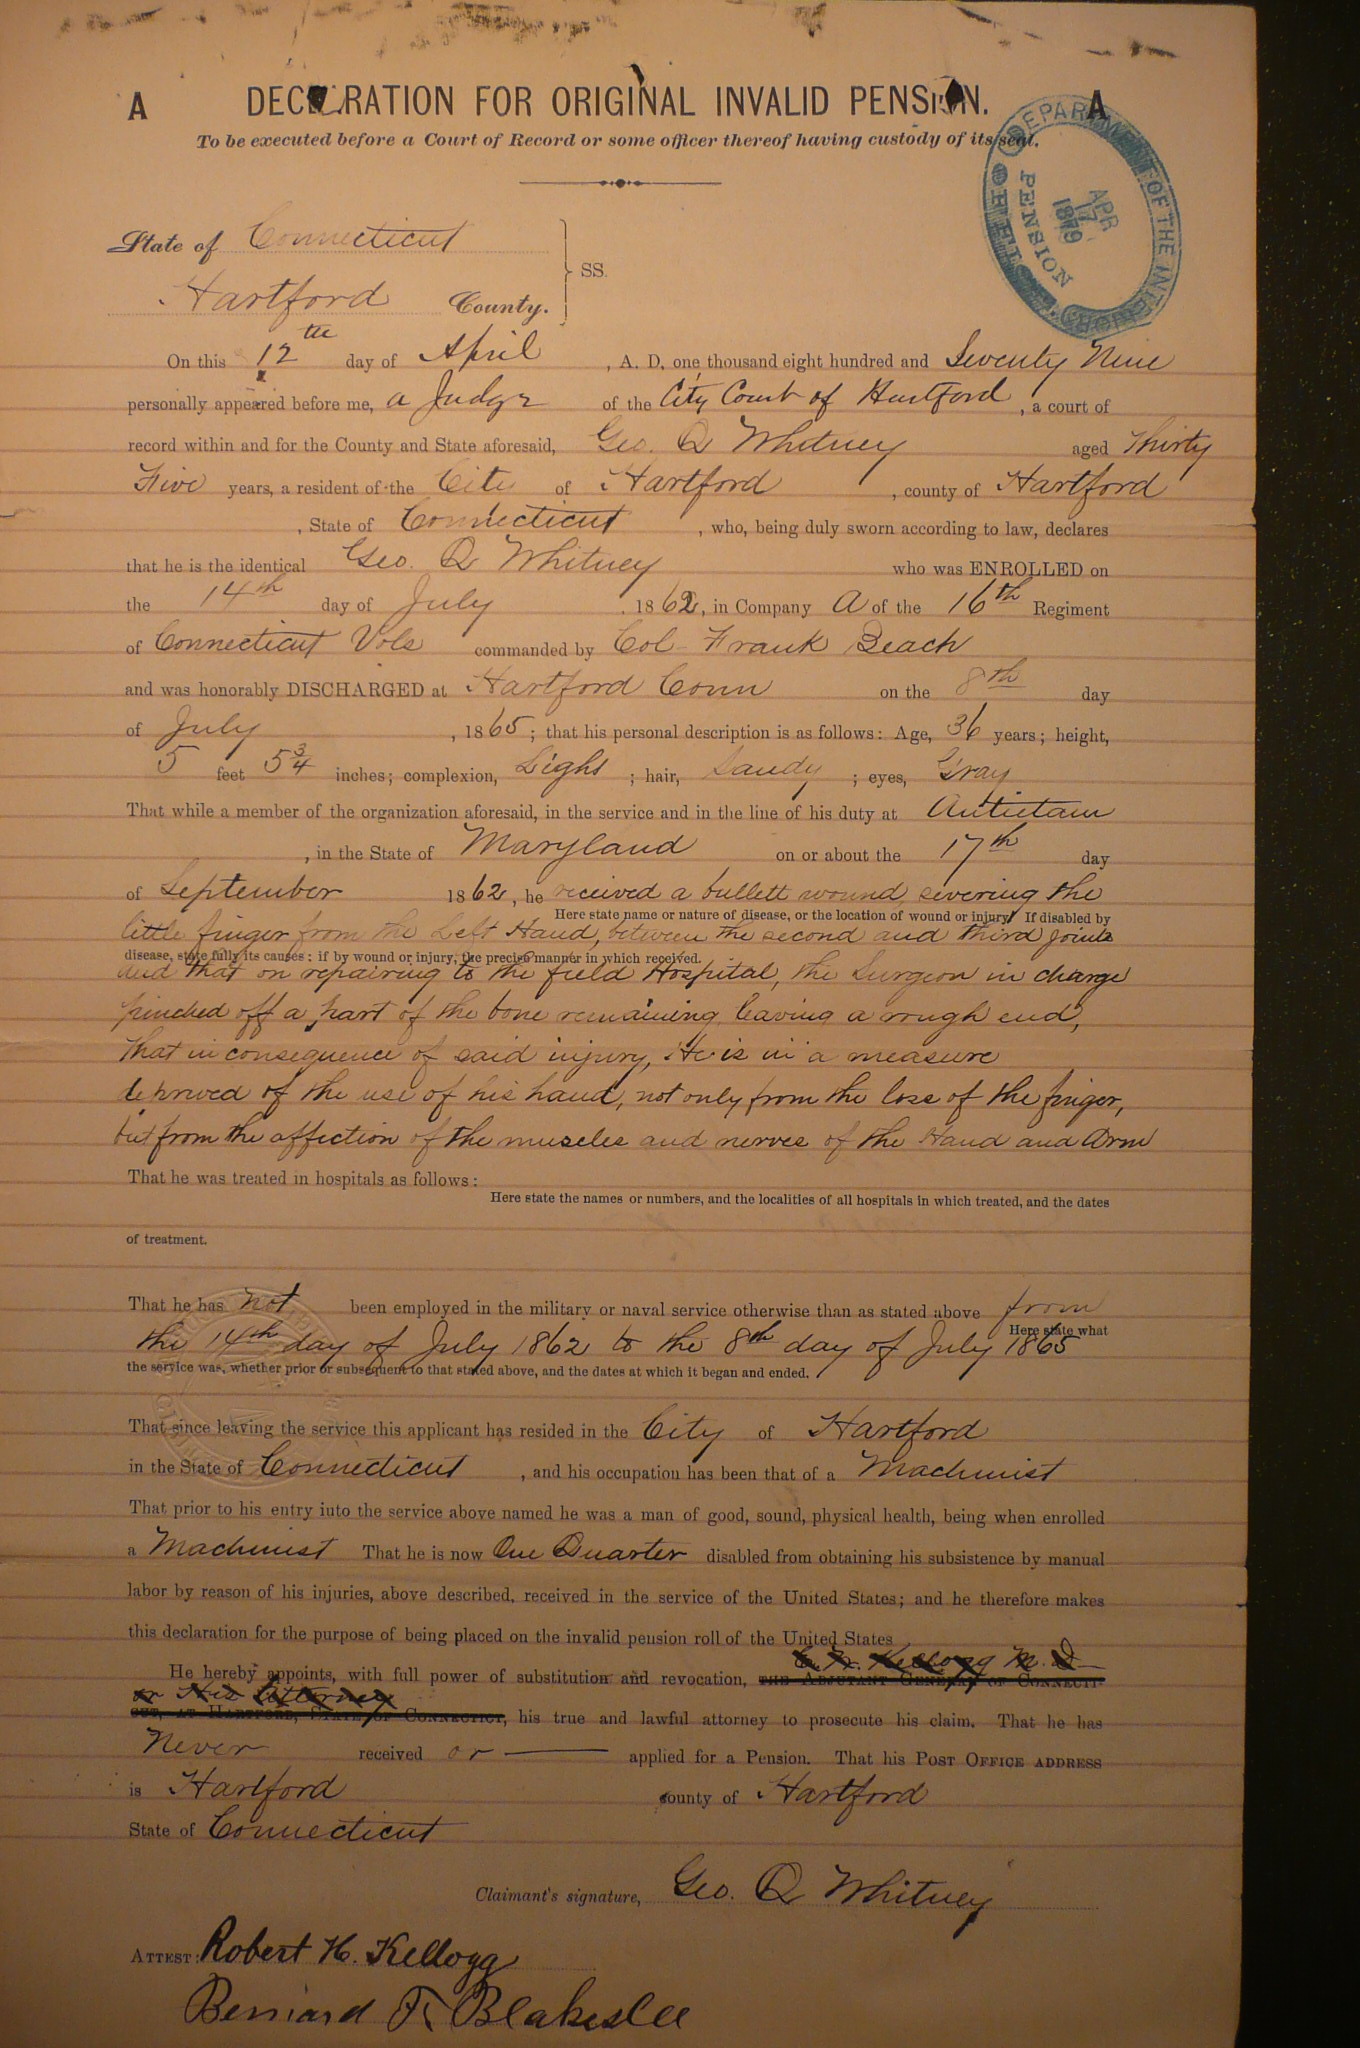 A DECLARATION FOR ORIGINAL INVALID PENSION. A
To be executed before a Court of Record or some officer thereof having custody of its seal.
DEPARTMENT OF THE INTERIOR
APR 17 1879
PENSION
OFFICE
State of Connecticut
SS.
Hartford County.
On this 12th day of April , A. D. one thousand eight hundred and Seventy Nine
personally appeared before me, a Judge of the City Court of Hartford , a court of
record within and for the County and State aforesaid, Geo. Q Whitney aged Thirty
Five years, a resident of the City of Hartford , county of Hartford
, State of Connecticut , who, being duly sworn according to law, declares
that he is the identical Geo. Q Whitney who was ENROLLED on
the 14th day of July , 1862, in Company A of the 16th Regiment
of Connecticut Vols commanded by Col Frank Beach
and was honorably DISCHARGED at Hartford Conn on the 8th day
of July , 1865; that his personal description is as follows: Age, 36 years; height,
5 feet 5 3/4 inches; complexion, Light ; hair, Sandy ; eyes, Gray
That while a member of the organization aforesaid, in the service and in the line of his duty at Antietam
, in the State of Maryland on or about the 17th day
of September 1862, he received a bullett wound, severing the
Here state name or nature of disease, or the location of wound or injury. If disabled by
little finger from the Left Hand, between the second and third joints
disease, state fully its causes: if by wound or injury, the precise manner in which received.
and that on repairing to the field Hospital, the Surgeon in charge
pinched off a part of the bone remaining leaving a rough end,
that in consequence of said injury, He is in a measure
deprived of the use of his hand, not only from the loss of the finger,
but from the affection of the muscles and nerves of the Hand and Arm
That he was treated in hospitals as follows:
Here state the names or numbers, and the localities of all hospitals in which treated, and the dates
of treatment.
That he has not been employed in the military or naval service otherwise than as stated above from
Here state what
the 14th day of July 1862 to the 8th day of July 1865
the service was, whether prior or subsequent to that stated above, and the dates at which it began and ended.
That since leaving the service this applicant has resided in the City of Hartford
in the State of Connecticut , and his occupation has been that of a Machinist
That prior to his entry into the service above named he was a man of good, sound, physical health, being when enrolled
a Machinist That he is now One Quarter disabled from obtaining his subsistence by manual
labor by reason of his injuries, above described, received in the service of the United States; and he therefore makes
this declaration for the purpose of being placed on the invalid pension roll of the United States
Kellogg M. D
He hereby appoints, with full power of substitution and revocation, THE ADJUTANT GENERAL OF CONNECTI-
or His Attorney
CUT, AT HARTFORD, STATE OF CONNECTICUT, his true and lawful attorney to prosecute his claim. That he has
Never received or applied for a Pension. That his POST OFFICE ADDRESS
is Hartford county of Hartford
State of Connecticut
Claimant's signature, Geo. Q Whitney
ATTEST: Robert H. Kellogg
Bernard F. Blakeslee